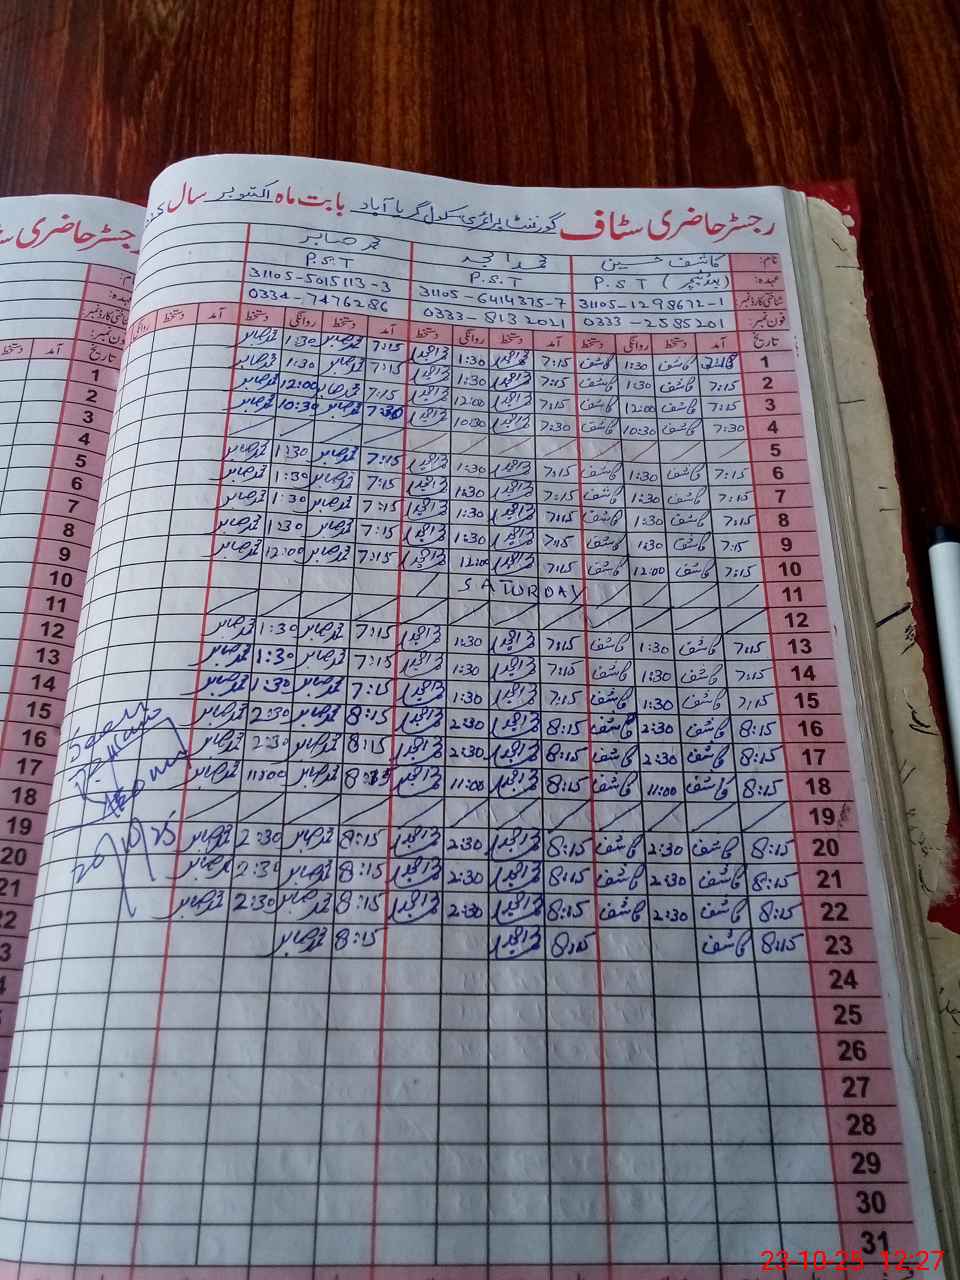 رجسٹر حاضری سٹاف گورنمنٹ پرائمری سکول گریا آباد بابت ماہ اکتوبر سال
نام: کاشف حسین محمد صابر
عہدہ: P.S.T (ہیڈ ٹیچر) P.S.T P.S.T
شناختی کارڈ نمبر: 31105-1298672-1 31105-6414375-7 31105-5015113-3
فون نمبر: 0333-2585201 0333-8132021 0334-7476286
تاریخ آمد دستخط روانگی دستخط آمد دستخط روانگی دستخط آمد دستخط روانگی دستخط آمد دستخط روانگی
1 7:15 کاشف 1:30 کاشف 7:15 1:30 7:15 محمد صابر 1:30 محمد صابر
2 7:15 کاشف 1:30 کاشف 7:15 1:30 7:15 محمد صابر 1:30 محمد صابر
3 7:15 کاشف 12:00 کاشف 7:15 12:00 7:15 محمد صابر 12:00 محمد صابر
4 7:30 کاشف 10:30 کاشف 7:30 10:30 7:30 محمد صابر 10:30 محمد صابر
5
6 7:15 کاشف 1:30 کاشف 7:15 1:30 7:15 محمد صابر 1:30 محمد صابر
7 7:15 کاشف 1:30 کاشف 7:15 1:30 7:15 محمد صابر 1:30 محمد صابر
8 7:15 کاشف 1:30 کاشف 7:15 1:30 7:15 محمد صابر 1:30 محمد صابر
9 7:15 کاشف 1:30 کاشف 7:15 1:30 7:15 محمد صابر 1:30 محمد صابر
10 7:15 کاشف 12:00 کاشف 7:15 12:00 7:15 محمد صابر 12:00 محمد صابر
11 SATURDAY
12
13 7:15 کاشف 1:30 کاشف 7:15 1:30 7:15 محمد صابر 1:30 محمد صابر
14 7:15 کاشف 1:30 کاشف 7:15 1:30 7:15 محمد صابر 1:30 محمد صابر
15 7:15 کاشف 1:30 کاشف 7:15 1:30 7:15 محمد صابر 1:30 محمد صابر
16 8:15 کاشف 2:30 کاشف 8:15 2:30 8:15 محمد صابر 2:30 محمد صابر
17 8:15 کاشف 2:30 کاشف 8:15 2:30 8:15 محمد صابر 2:30 محمد صابر
18 8:15 کاشف 11:00 کاشف 8:15 11:00 8:15 محمد صابر 11:00 محمد صابر
19
20 8:15 کاشف 2:30 کاشف 8:15 2:30 8:15 محمد صابر 2:30 محمد صابر
21 8:15 کاشف 2:30 کاشف 8:15 2:30 8:15 محمد صابر 2:30 محمد صابر
22 8:15 کاشف 2:30 کاشف 8:15 2:30 8:15 محمد صابر 2:30 محمد صابر
23 8:15 کاشف 8:15 8:15 محمد صابر
24
25
26
27
28
29
30
31
Seen
20/10/25
رجسٹر حاضری
تاریخ آمد دستخط
1
2
3
4
5
6
7
8
9
10
11
12
13
14
15
16
17
18
19
20
21
23-10-25 12:27